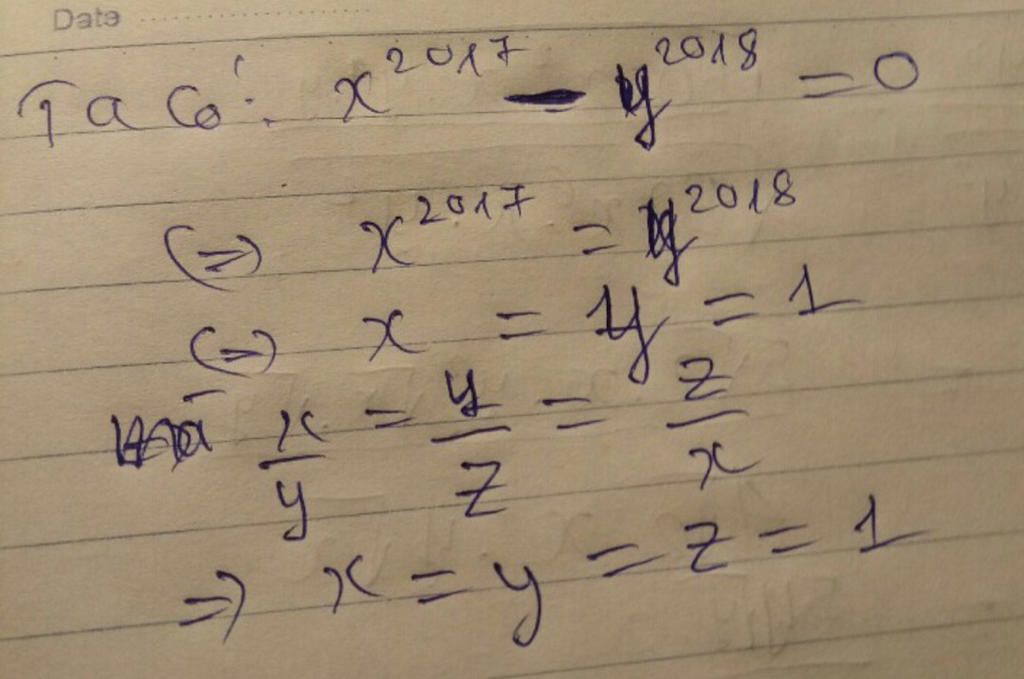 Date
Ta có: x^2017 - y^2018 = 0
(=) x^2017 = y^2018
(=) x = y = 1
mà x/y = y/z = z/x
=) x = y = z = 1